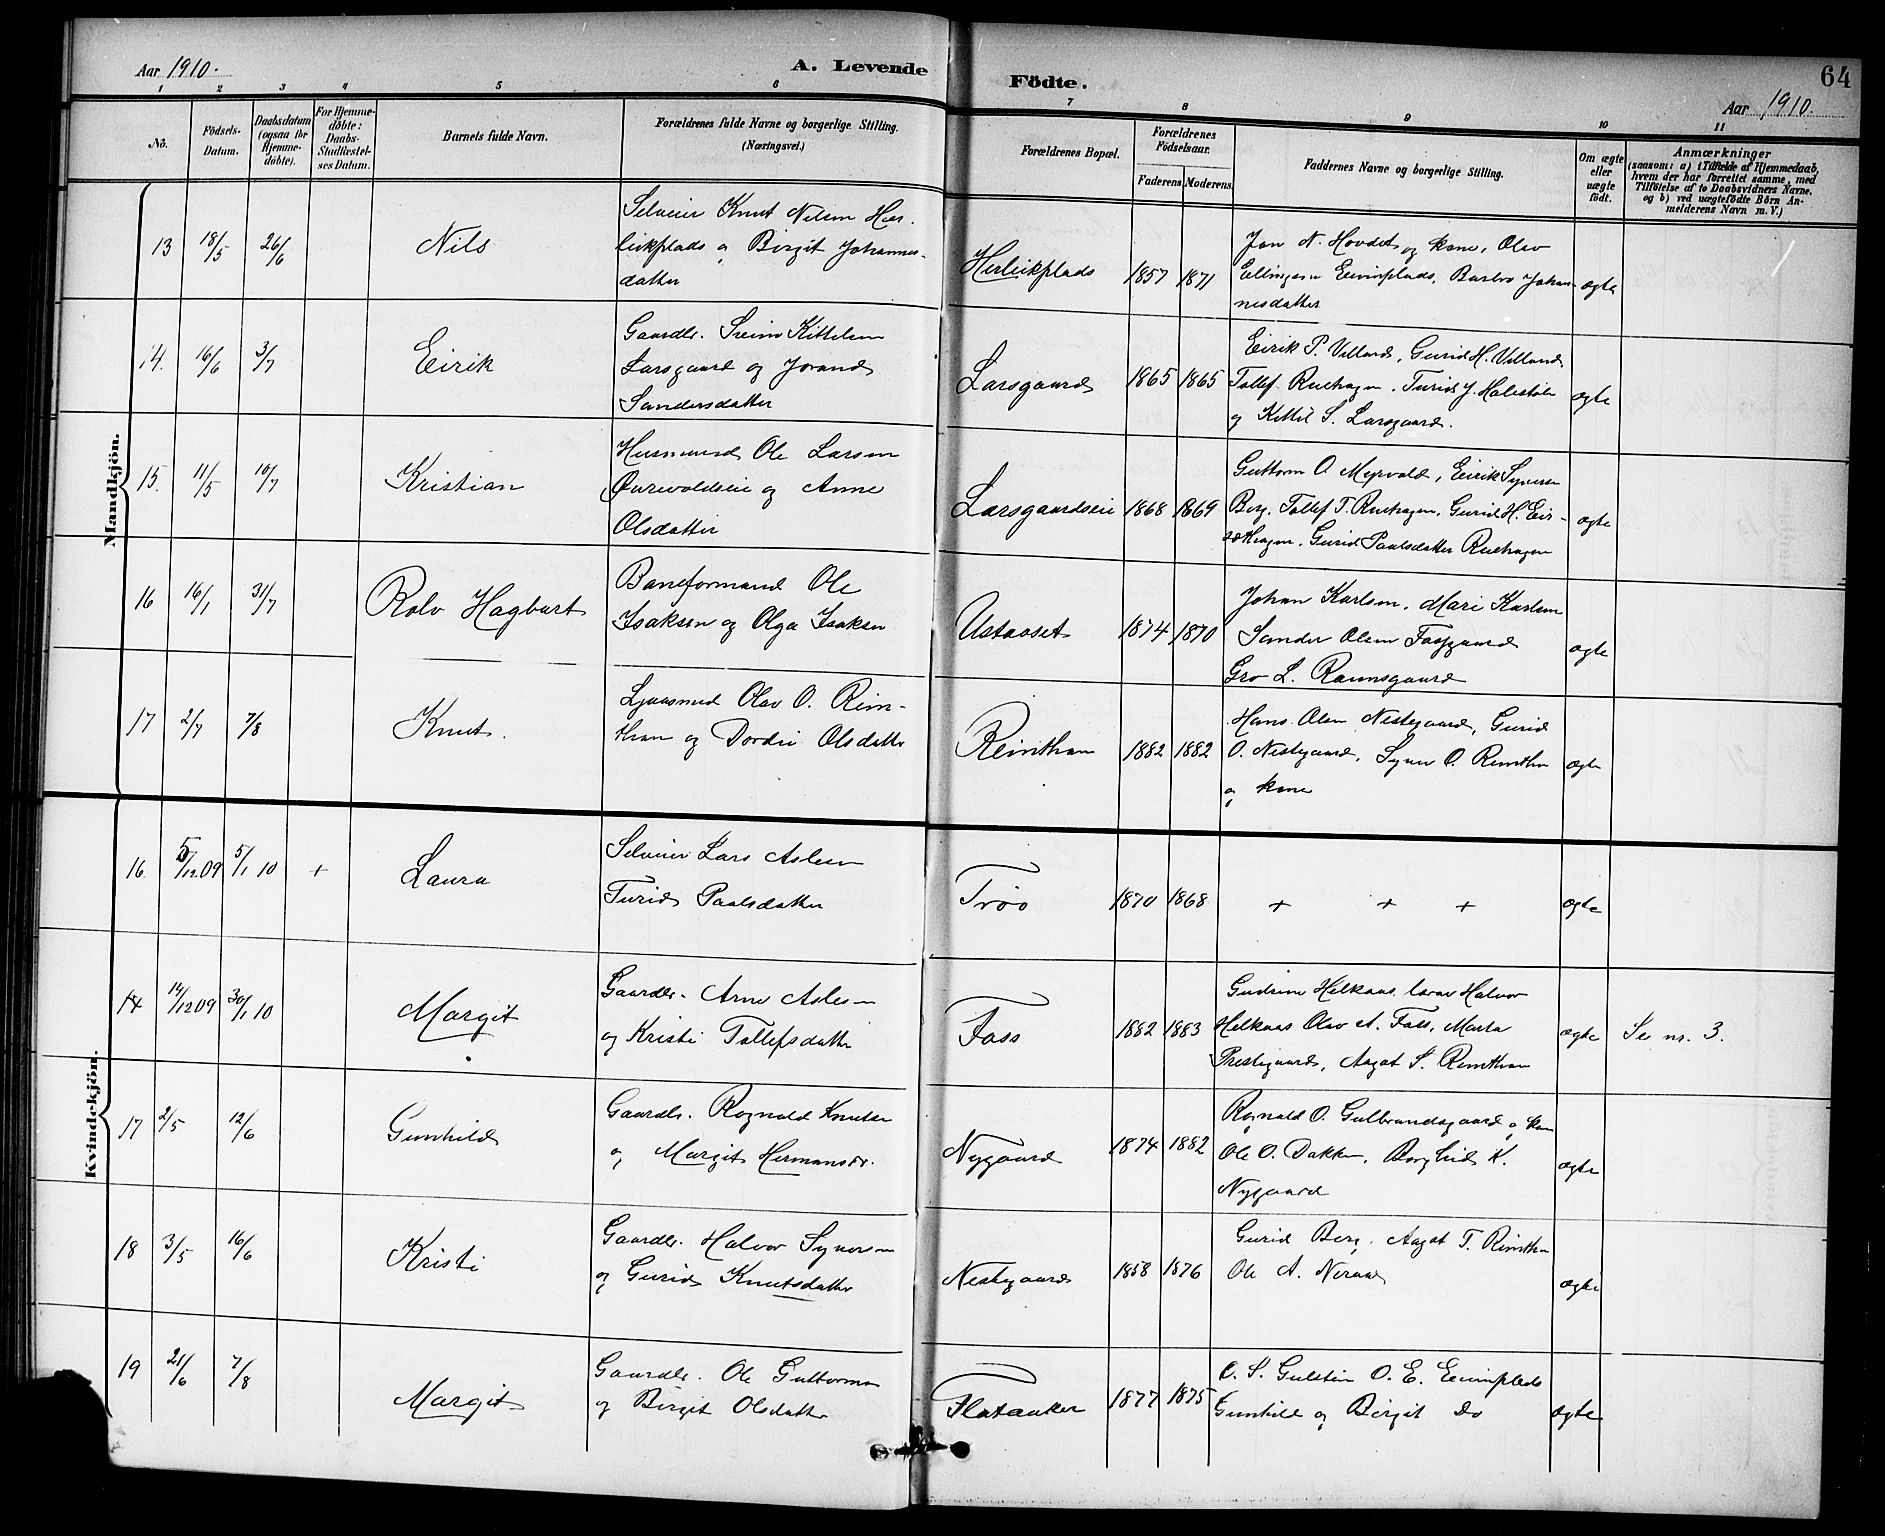 Aar 1910.
A. Levende
Födte.
64
Aar 1910.
1 2 3 4 5 6 7 8 9 10 11
No.
Födsels-
Datum.
Daabsdatum
(ogsaa for
Hjemme-
döbte).
For Hjemme-
döbte:
Daabs-
Stadfæstel-
ses Datum.
Barnets fulde Navn.
Forældrenes fulde Navne og borgerlige Stilling.
(Næringsvei.)
Forældrenes Bopæl.
Forældrenes
Födselsaar.
Faderens. Moderens.
Faddernes Navne og borgerlige Stilling.
Om ægte
eller
uægte
födt.
Anmærkninger
(saasom: a) i Tilfælde af Hjemmedaab,
hvem der har forrettet samme, med
Tilföielse af to Daabsvidners Navne,
og b) ved uægtefödte Börn An-
melderens Navn m. V.)
Mandkjön.
13 18/5 26/6 Nils
Selveier Knut Nilsen Her-
leikplads og Birgit Johannes-
datter
Herleikplads 1857 1871
Jon N. Hovdet og kone, Olav
Ellingsen Eivinplads, Barbro Johan-
nesdatter
ægte
14. 16/6 3/7 Eirik
Gaardbr. Svein Kittelsen
Larsgaard og Jorand
Sandersdatter
Larsgaard 1865 1865
Eirik P. Villand, Gurid H. Villand,
Tollef Ruehagen, Turid J. Holestöle
og Kittil S. Larsgaard.
ægte
15. 11/5 10/7 Kristian
Husmand Ole Larsen
Öurevoldseie og Anne
Olsdatter
Larsgaardseie 1868 1869
Guttorm O. Myrvold, Eirik Syversen
Berg, Tollef T. Ruehagen, Gurid H. Eir-
hagen, Gurid Paalsdatter Ruehagen
ægte
16 16/1 31/7 Rolv Hagbart
Baneformand Ole
Isaksen og Olga Isaksen
Ustaoset 1874 1870
Johan Karlsen, Mari Karlsen
Sander Olsen Tofsgaard
Gro L. Raunsgaard
ægte
17 2/7 7/8 Knut.
Ljaasmed Olav O. Reim-
than og Dordei Olsdatter
Reinthan 1882 1882
Hans Olsen Nestegaard, Gurid
O. Nestegaard, Syver O. Reinthan
og kone
ægte
Kvindekjön.
16. 5/12 09 5/1 10 + Laura
Selveier Lars Aslesen
Turid Paalsdatter
Tröo 1870 1868
+ + +
ægte
14 14/12 09 30/1 10 Margit
Gaardbr. Arne Aslesen
og Kristi Tollefsdatter
Foss 1882 1883
Gudrine Helkaas, lærer Halvor
Helkaas Olav A. Foss, Marta
Prestegaard, Aagot S. Reinthan
ægte
Se nr. 3.
17 2/5 12/6 Gunhild
Gaardbr. Rognald Knutsen
og Margit Hermansdr.
Nygaard 1874 1882
Rognald O. Gulbrandsgaard og kone
Ole O. Dokken, Borghild K.
Nygaard
ægte
18 3/5 16/6 Kristi
Gaardbr. Halvor Syversen
og Gurid Knutsdatter
Nestegaard 1858 1876
Gurid Berg, Aagot T. Reinthan
Ole A. Neraal
ægte
19 21/6 7/8 Margit
Gaardbr. Ole Guttormsen
og Birgit Olsdatter
Flataaker 1877 1875
O. S. Gulstein O. E. Eivinplads
Gunhild og Birgit Do
ægte